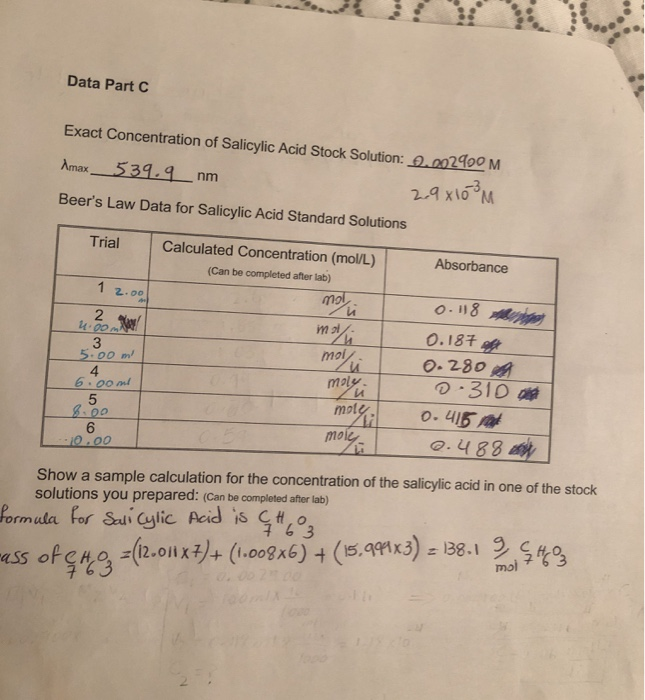 Data Part C
Exact Concentration of Salicylic Acid Stock Solution: 0.002900 M
λmax 539.9 nm
2.9 x 10⁻³ M
Beer's Law Data for Salicylic Acid Standard Solutions
Trial Calculated Concentration (mol/L) Absorbance
(Can be completed after lab)
1 2.00 mol/ 0.118
2 4.00 mol/ 0.187
3 5.00 ml mol/ 0.280
4 6.00 ml mole/ 0.310
5 8.00 mole/ 0.415
6 10.00 mole/ 0.488
Show a sample calculation for the concentration of the salicylic acid in one of the stock
solutions you prepared: (Can be completed after lab)
formula for Sali Cylic Acid is C₇H₆O₃
ass of C₇H₆O₃ = (12.011x7) + (1.008x6) + (15.999x3) = 138.1 g/mol C₇H₆O₃